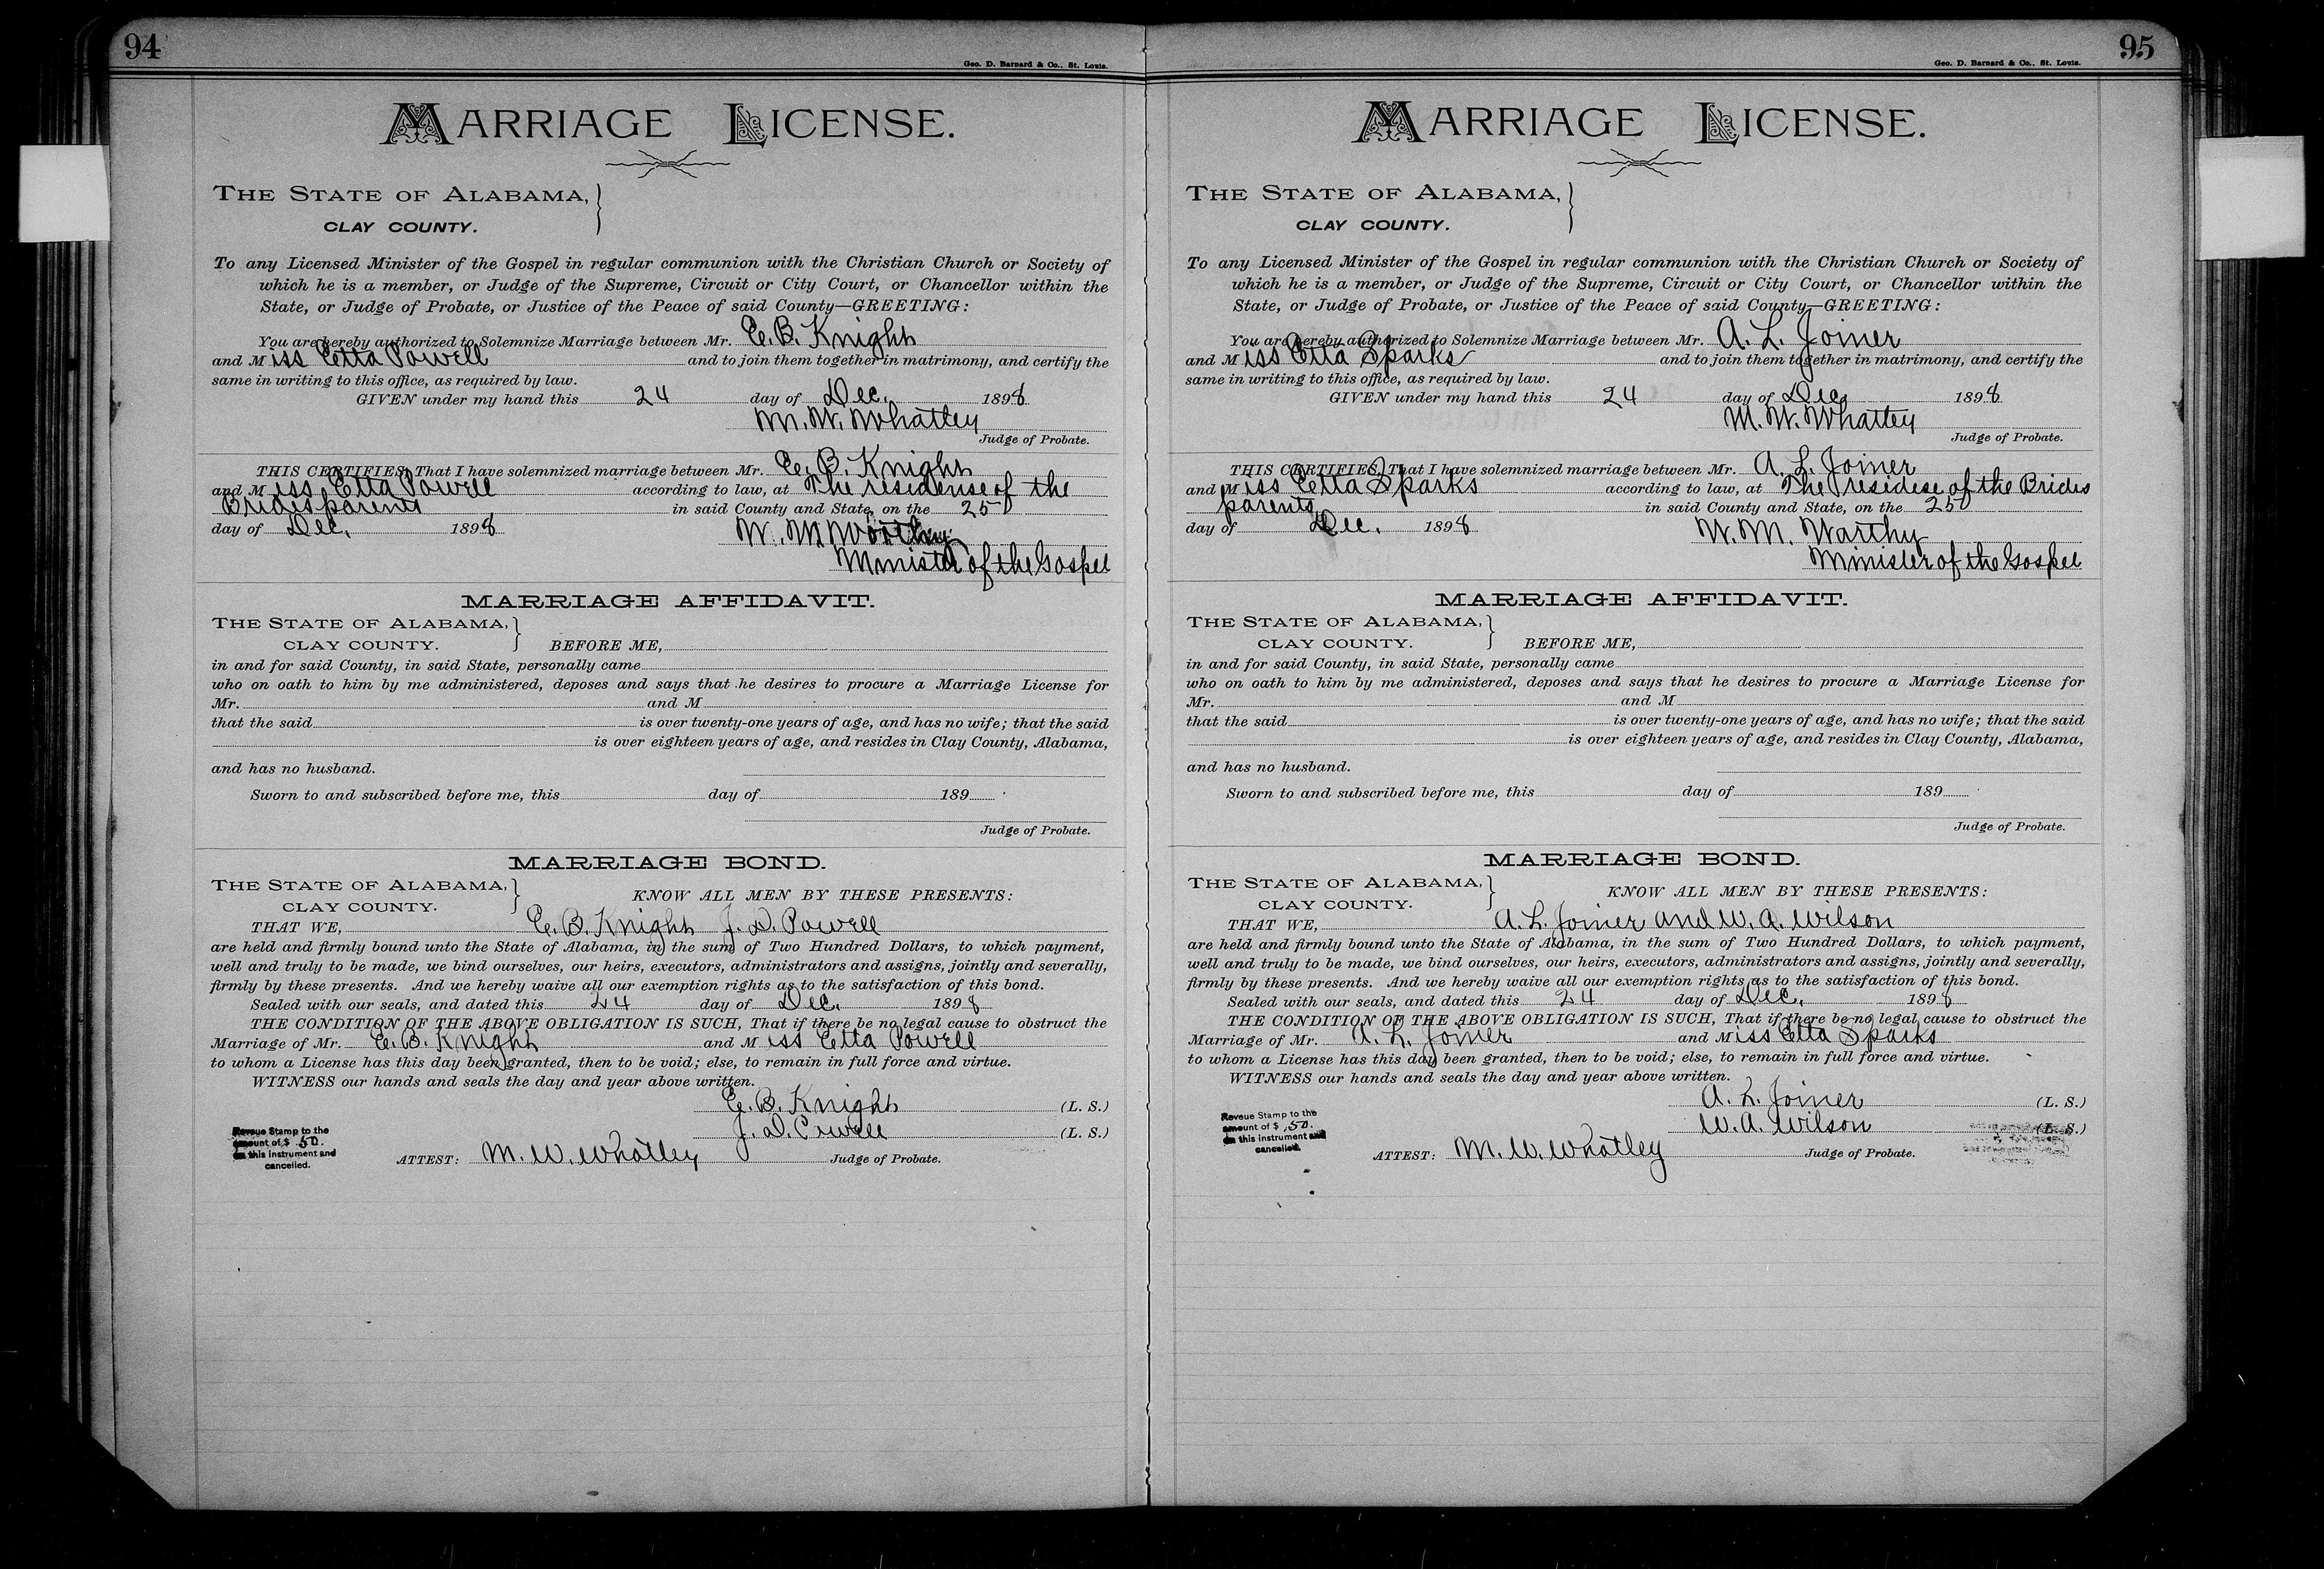 94
Geo. D. Barnard & Co., St. Louis.
MARRIAGE LICENSE.
THE STATE OF ALABAMA,
CLAY COUNTY.
To any Licensed Minister of the Gospel in regular communion with the Christian Church or Society of
which he is a member, or Judge of the Supreme, Circuit or City Court, or Chancellor within the
State, or Judge of Probate, or Justice of the Peace of said County—GREETING:
You are hereby authorized to Solemnize Marriage between Mr. E. B. Knight
and Miss Etta Powell and to join them together in matrimony, and certify the
same in writing to this office, as required by law.
GIVEN under my hand this 24 day of Dec. 1898
M. W. Whatley
Judge of Probate.
THIS CERTIFIES, That I have solemnized marriage between Mr. E. B. Knight
and Miss Etta Powell according to law, at The residense of the
Brides parents in said County and State, on the 25
day of Dec. 1898 W. M. Worthy
Minister of the Gospel
MARRIAGE AFFIDAVIT.
THE STATE OF ALABAMA,
CLAY COUNTY. BEFORE ME,
in and for said County, in said State, personally came
who on oath to him by me administered, deposes and says that he desires to procure a Marriage License for
Mr. and M
that the said is over twenty-one years of age, and has no wife; that the said
is over eighteen years of age, and resides in Clay County, Alabama,
and has no husband.
Sworn to and subscribed before me, this day of 189
Judge of Probate.
MARRIAGE BOND.
THE STATE OF ALABAMA,
CLAY COUNTY. KNOW ALL MEN BY THESE PRESENTS:
THAT WE, E. B. Knight J. D. Powell
are held and firmly bound unto the State of Alabama, in the sum of Two Hundred Dollars, to which payment,
well and truly to be made, we bind ourselves, our heirs, executors, administrators and assigns, jointly and severally,
firmly by these presents. And we hereby waive all our exemption rights as to the satisfaction of this bond.
Sealed with our seals, and dated this 24 day of Dec. 1898
THE CONDITION OF THE ABOVE OBLIGATION IS SUCH, That if there be no legal cause to obstruct the
Marriage of Mr. E. B. Knight and Miss Etta Powell
to whom a License has this day been granted, then to be void; else, to remain in full force and virtue.
WITNESS our hands and seals the day and year above written.
E. B. Knight (L. S.)
J. D. Powell (L. S.)
Reveue Stamp to the
amount of $ .50.
on this instrument and
cancelled.
ATTEST: M. W. Whatley Judge of Probate.
95
Geo. D. Barnard & Co., St. Louis.
MARRIAGE LICENSE.
THE STATE OF ALABAMA,
CLAY COUNTY.
To any Licensed Minister of the Gospel in regular communion with the Christian Church or Society of
which he is a member, or Judge of the Supreme, Circuit or City Court, or Chancellor within the
State, or Judge of Probate, or Justice of the Peace of said County—GREETING:
You are hereby authorized to Solemnize Marriage between Mr. A. L. Joiner
and Miss Etta Sparks and to join them together in matrimony, and certify the
same in writing to this office, as required by law.
GIVEN under my hand this 24 day of Dec. 1898
M. W. Whatley
Judge of Probate.
THIS CERTIFIES, That I have solemnized marriage between Mr. A. L. Joiner
and Miss Etta Sparks according to law, at The residese of the Brides
parents in said County and State, on the 25
day of Dec. 1898 W. M. Warthy
Minister of the Gospel
MARRIAGE AFFIDAVIT.
THE STATE OF ALABAMA,
CLAY COUNTY. BEFORE ME,
in and for said County, in said State, personally came
who on oath to him by me administered, deposes and says that he desires to procure a Marriage License for
Mr. and M
that the said is over twenty-one years of age, and has no wife; that the said
is over eighteen years of age, and resides in Clay County, Alabama,
and has no husband.
Sworn to and subscribed before me, this day of 189
Judge of Probate.
MARRIAGE BOND.
THE STATE OF ALABAMA,
CLAY COUNTY. KNOW ALL MEN BY THESE PRESENTS:
THAT WE, A. L. Joiner and W. A. Wilson
are held and firmly bound unto the State of Alabama, in the sum of Two Hundred Dollars, to which payment,
well and truly to be made, we bind ourselves, our heirs, executors, administrators and assigns, jointly and severally,
firmly by these presents. And we hereby waive all our exemption rights as to the satisfaction of this bond.
Sealed with our seals, and dated this 24 day of Dec. 1898
THE CONDITION OF THE ABOVE OBLIGATION IS SUCH, That if there be no legal cause to obstruct the
Marriage of Mr. A. L. Joiner and Miss Etta Sparks
to whom a License has this day been granted, then to be void; else, to remain in full force and virtue.
WITNESS our hands and seals the day and year above written.
A. L. Joiner (L. S.)
W. A. Wilson (L. S.)
Reveue Stamp to the
amount of $ .50.
on this instrument and
cancelled.
ATTEST: M. W. Whatley Judge of Probate.